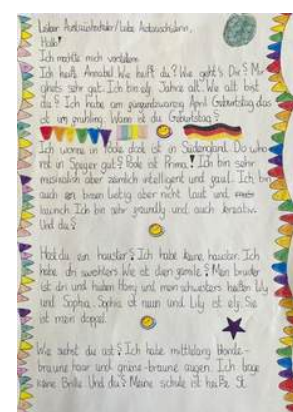 Lieber Austauschschüler/Liebe Austauschülerin,
Hallo!
Ich möchte mich vorstellen
Ich heiße Annabel Wie heißt du? Wie geht's Dir? Mir
ghets sehr gut. Ich bin elf Jahre alt. Wie alt bist
du? Ich habe am April Geburtstag das
ist im frühling. Wann ist die Geburtstag?
Ich wohne in Poole dast ist in Südengland. Do who
rst in Speyer gut? Poole ist Prima! Ich bin sehr
musikalisch aber ziemlich intelligent und faul. Ich bin
auch ein bisen lustig aber nicht laut und
launich. Ich bin sehr freundlig und auch kreativ.
Und du?
Hast du ein haustier? Ich habe keine haustier. Ich
habe dri Wie ist dien familie? Mein bruder
ist dri und hießen Harry und mein schwesters heißen Lily
und Sophia. Sophia ist neun und Lily ist elf. Sie
ist mein doppel.
Wie siehst die aus? Ich habe mittellang blonde-
braune haar und grüne-braune augen. Ich trage
keine Brille. Und du? Meine schule ist heiße St.